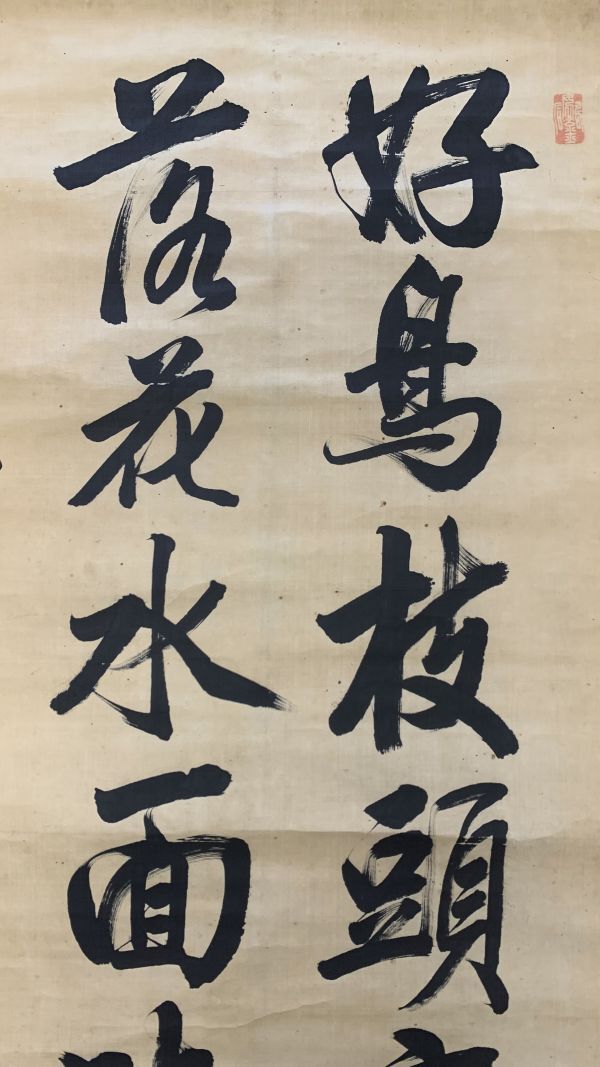 好鳥枝頭
落花水面